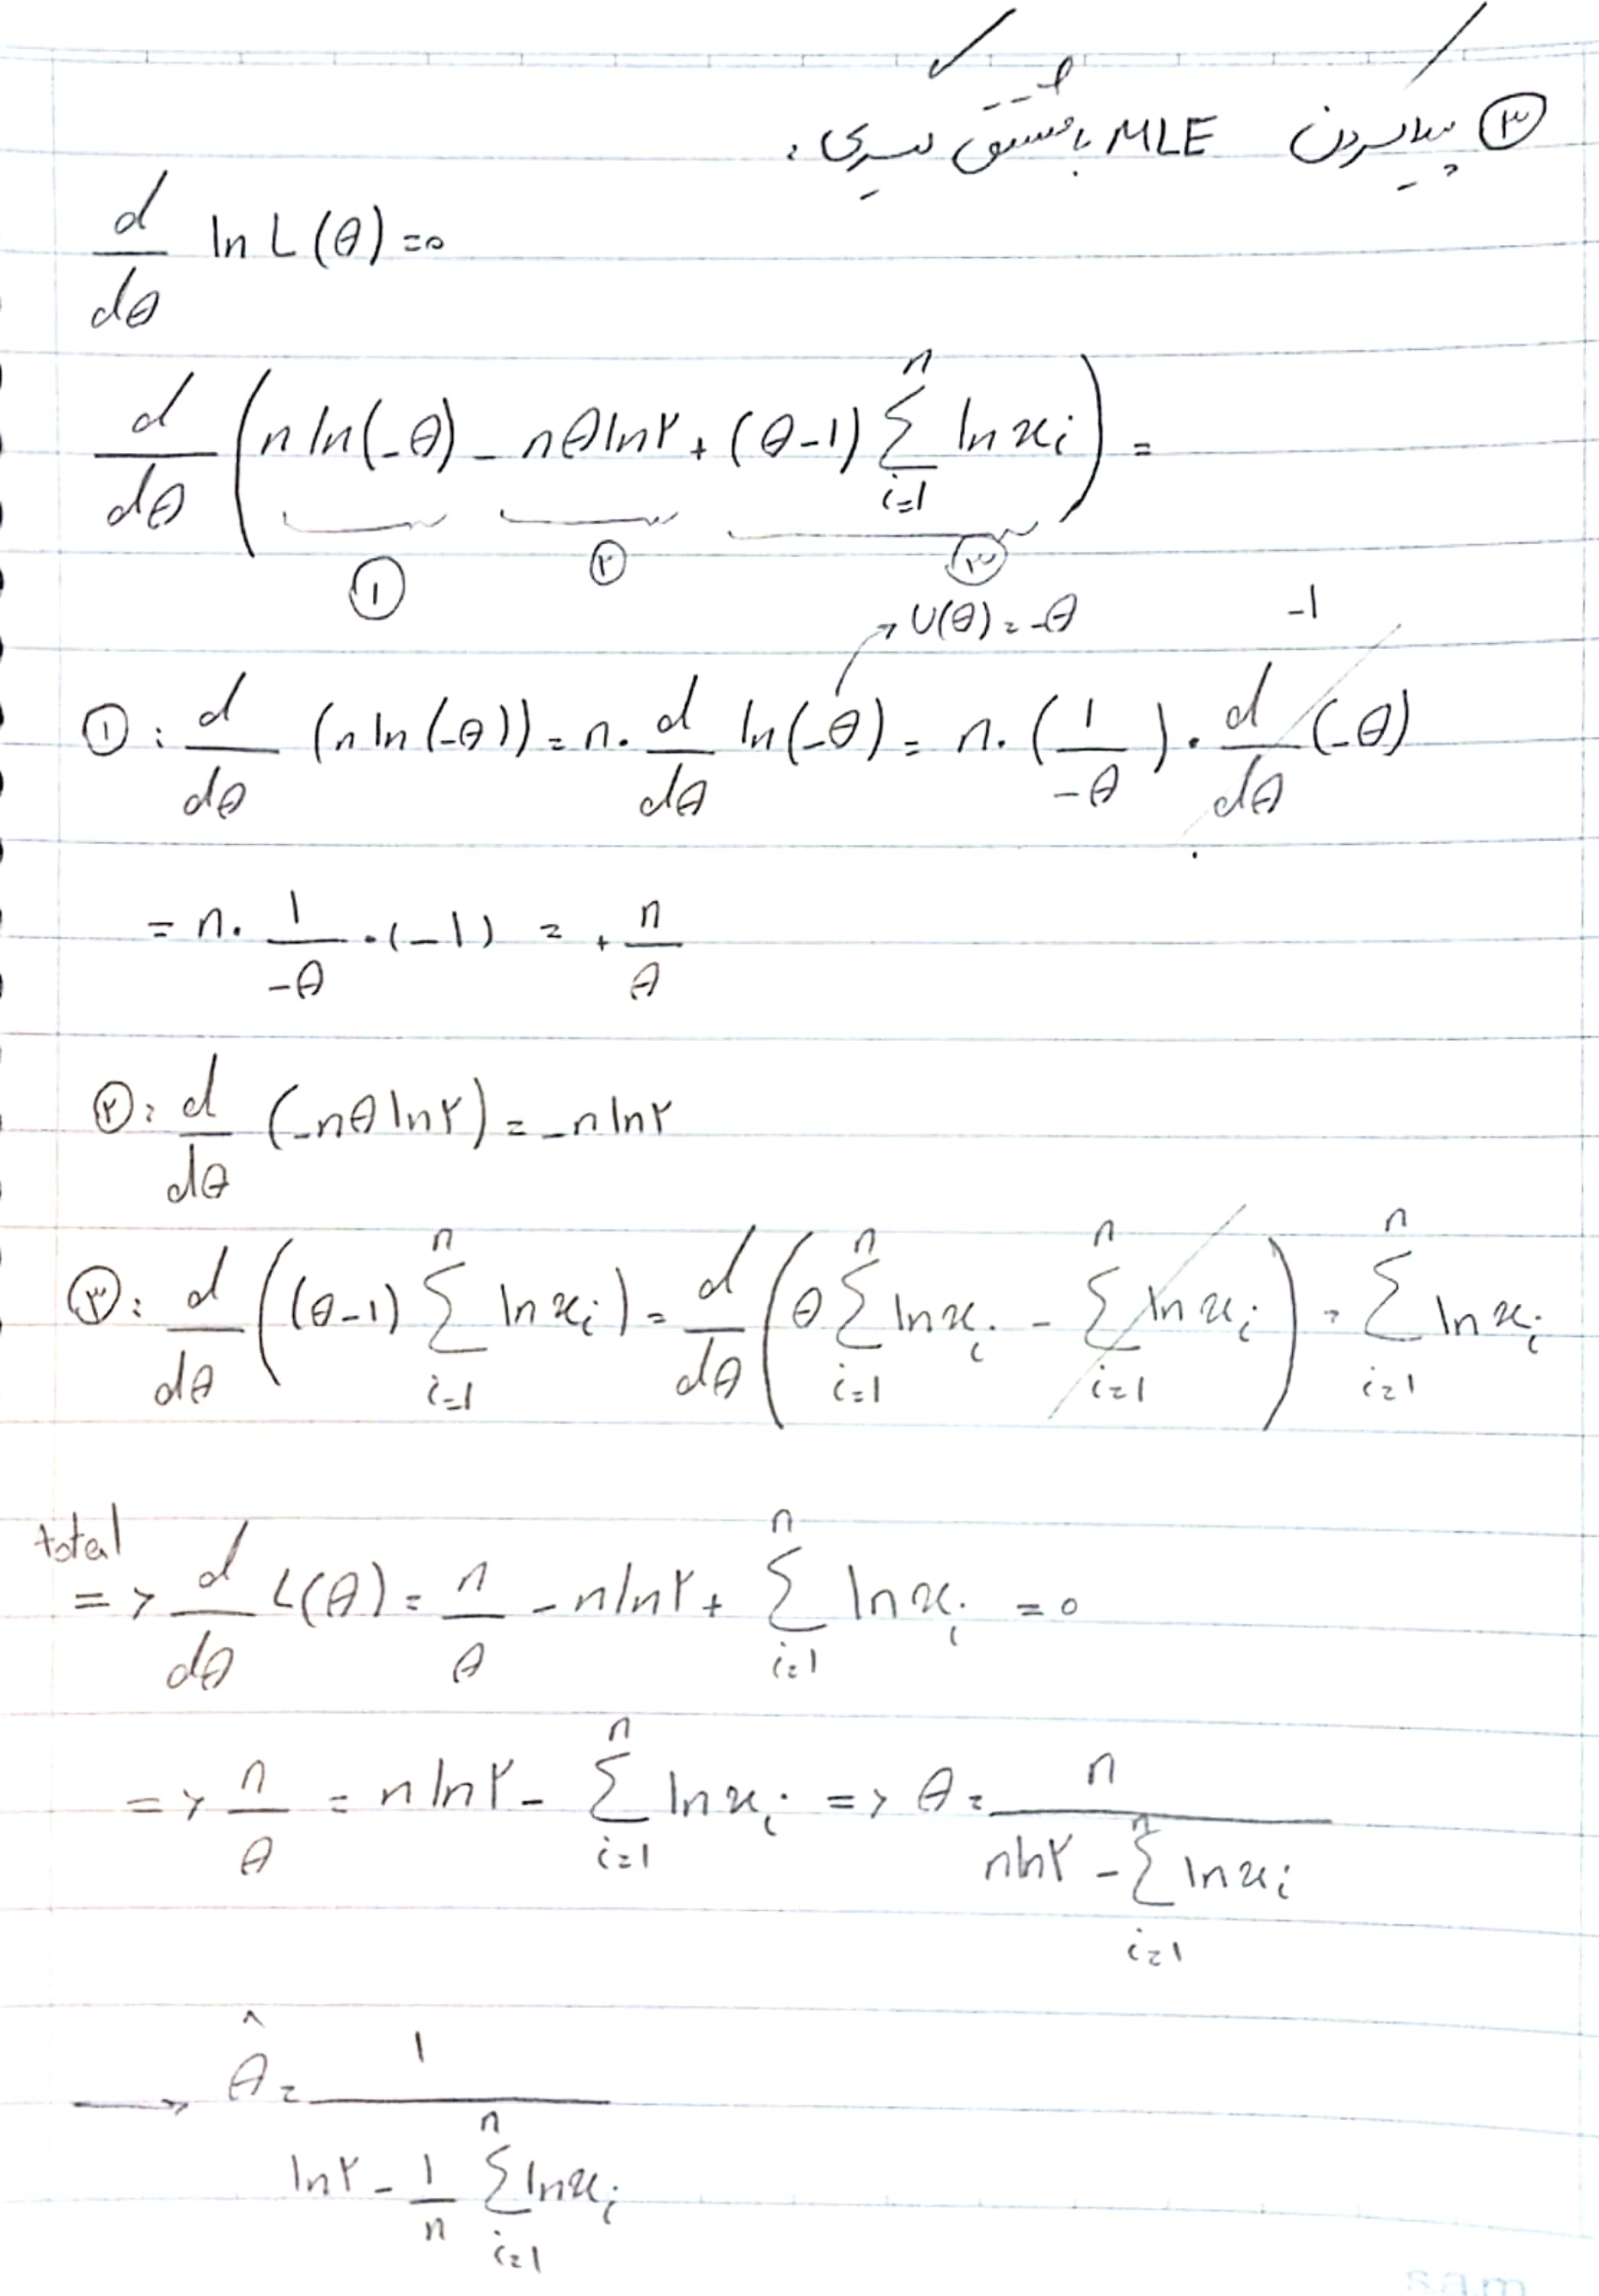 ③ پیدا کردن MLE با مشتق گیری:
d/dθ ln L(θ) = ۰
d/dθ (n ln(-θ) - nθ ln۲ + (θ-1) Σ_{i=1}^{n} ln x_i) =
① ② ③
→ U(θ) = -θ -1
①: d/dθ (n ln(-θ)) = n. d/dθ ln(-θ) = n. (1/-θ) . d/dθ (-θ)
= n. 1/-θ .(-1) = + n/θ
②: d/dθ (-nθ ln۲) = -n ln۲
③: d/dθ ((θ-1) Σ_{i=1}^{n} ln x_i) = d/dθ (θ Σ_{i=1}^{n} ln x_i - Σ_{i=1}^{n} ln x_i) = Σ_{i=1}^{n} ln x_i
total
=> d/dθ L(θ) = n/θ - n ln۲ + Σ_{i=1}^{n} ln x_i = ۰
=> n/θ = n ln۲ - Σ_{i=1}^{n} ln x_i => θ = n/(n ln۲ - Σ_{i=1}^{n} ln x_i)
→ θ̂ = 1/(ln۲ - 1/n Σ_{i=1}^{n} ln x_i)
sam